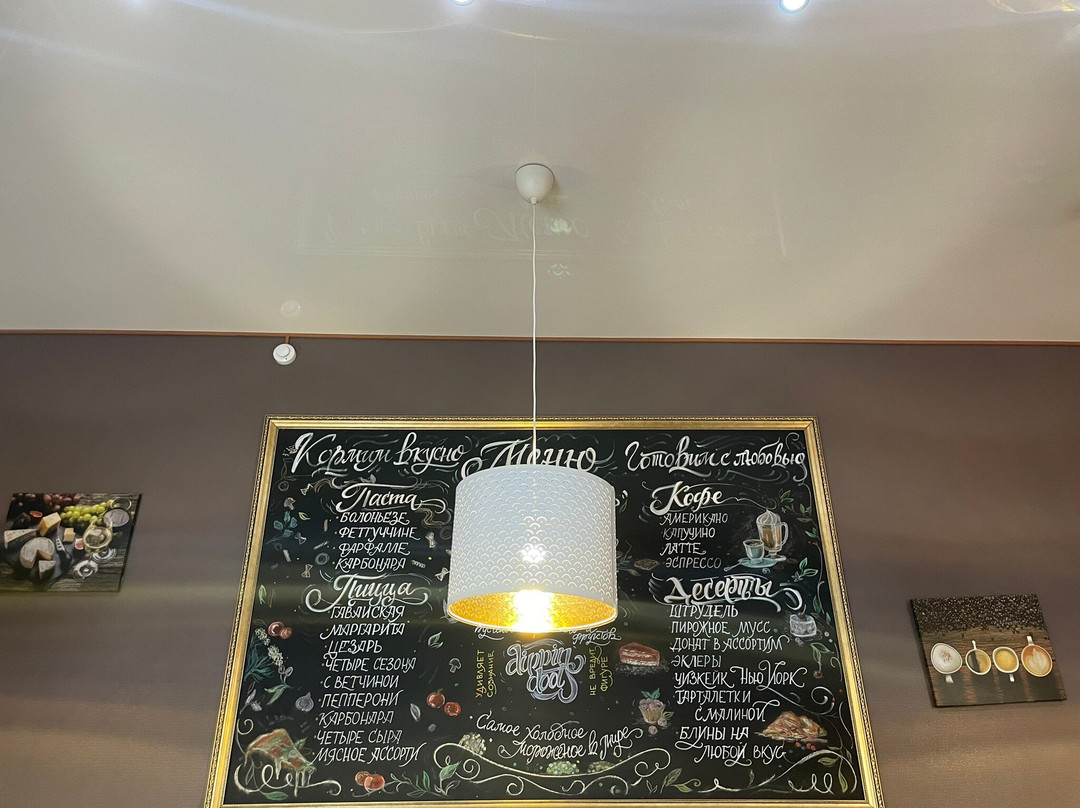 Кормим вкусно
Меню
Готовим с любовью
Паста
БОЛОНЬЕЗЕ
ФЕТТУЧЧИНЕ
ФАРФАЛЛЕ
КАРБОНАРА
Пицца
ГАВАЙСКАЯ
МАРГАРИТА
ЦЕЗАРЬ
ЧЕТЫРЕ СЕЗОНА
С ВЕТЧИНОЙ
ПЕППЕРОНИ
КАРБОНАРА
ЧЕТЫРЕ СЫРА
МЯСНОЕ АССОРТИ
УДИВЛЯЕТ
СОЗНАНИЕ
dippin
dots
НЕ ВРЕДИТ
ФИГУРЕ
Самое холодное
мороженое в мире
Кофе
АМЕРИКАНО
КАПУЧИНО
ЛАТТЕ
ЭСПРЕССО
Десерты
ШТРУДЕЛЬ
ПИРОЖНОЕ МУСС
ДОНАТ В АССОРТИМ
ЭКЛЕРЫ
ЧИЗКЕЙК НЬЮ ЙОРК
ТАРТАЛЕТКИ
С МАЛИНОЙ
БЛИНЫ НА
ЛЮБОЙ ВКУС